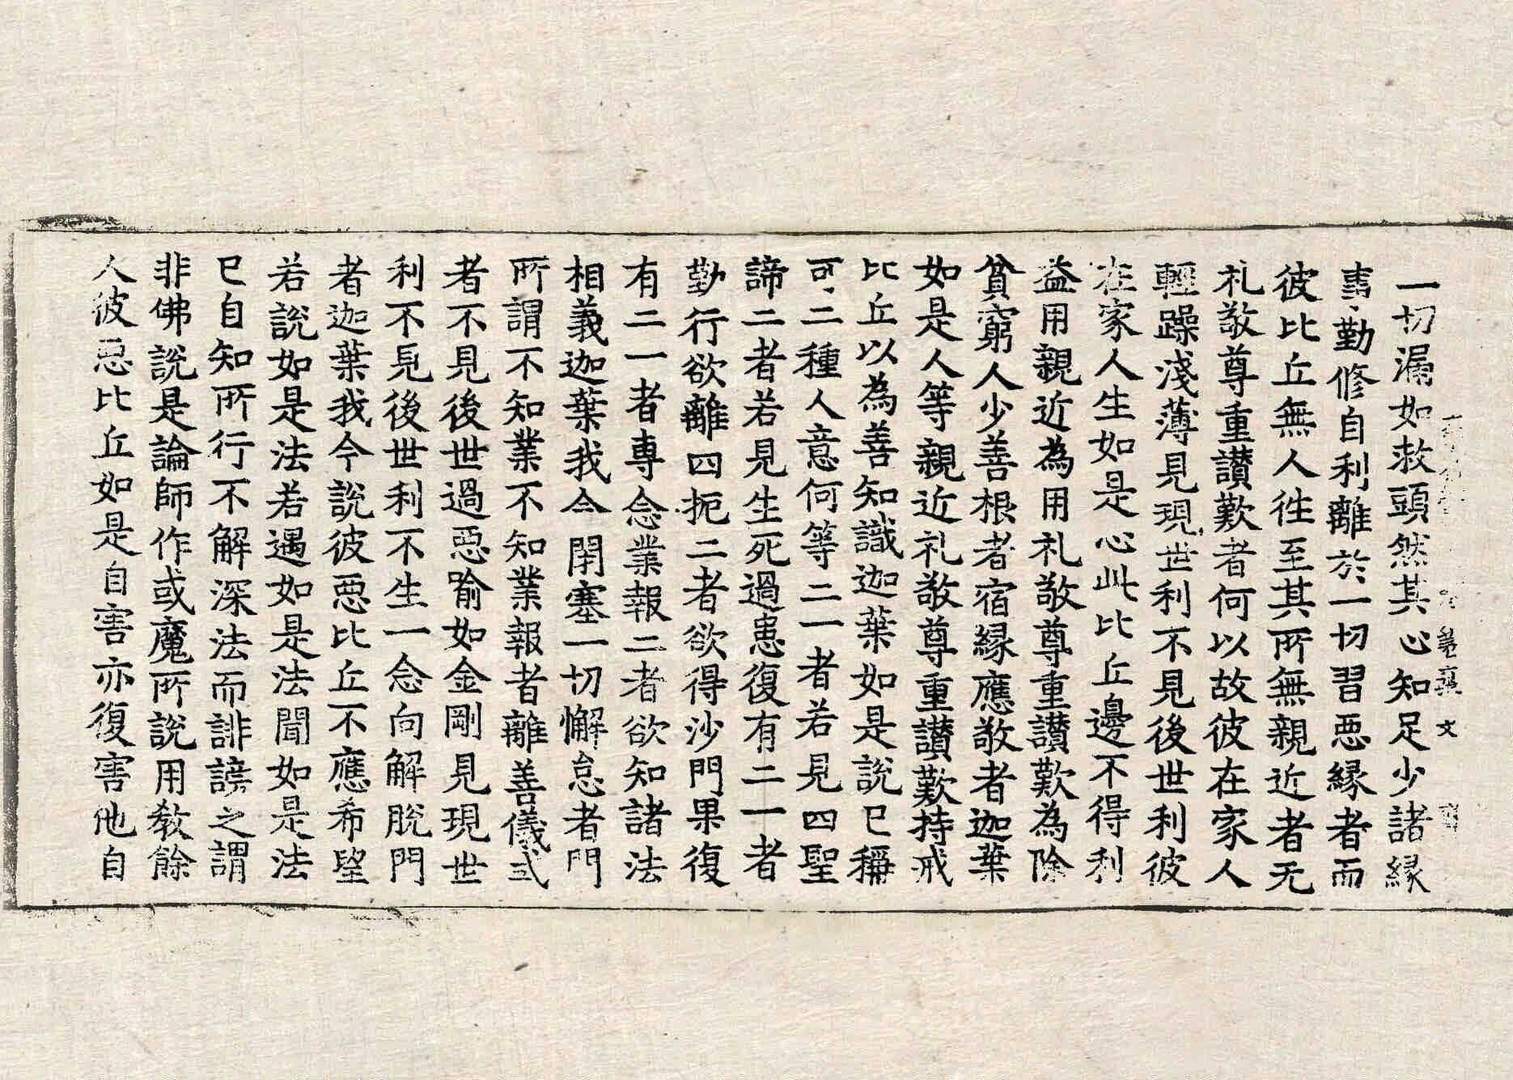 一切漏如救頭然其心知足少諸縁
事勤修自利離於一切習惡縁者而
彼比丘無人往至其所無親近者无
礼敬尊重讃歎者何以故彼在家人
輕躁淺薄見現世利不見後世利彼
在家人生如是心此比丘邊不得利
益用親近為用礼敬尊重讃歎為除
貧窮人少善根者宿縁應敬者迦葉
如是人等親近礼敬尊重讃歎持戒
比丘以為善知識迦葉如是說已稱
可二種人意何等二一者若見四聖
諦二者若見生死過患復有二一者
勤行欲離四扼二者欲得沙門果復
有二一者專念業報二者欲知諸法
相義迦葉我今閇塞一切懈怠者門
所謂不知業不知業報者離善儀式
者不見後世過惡喻如金剛見現世
利不見後世利不生一念向解脫門
者迦葉我今說彼惡比丘不應希望
若說如是法若遇如是法聞如是法
已自知所行不解深法而誹謗之謂
非佛說是論師作或魔所說用教餘
人彼惡比丘如是自害亦復害他自